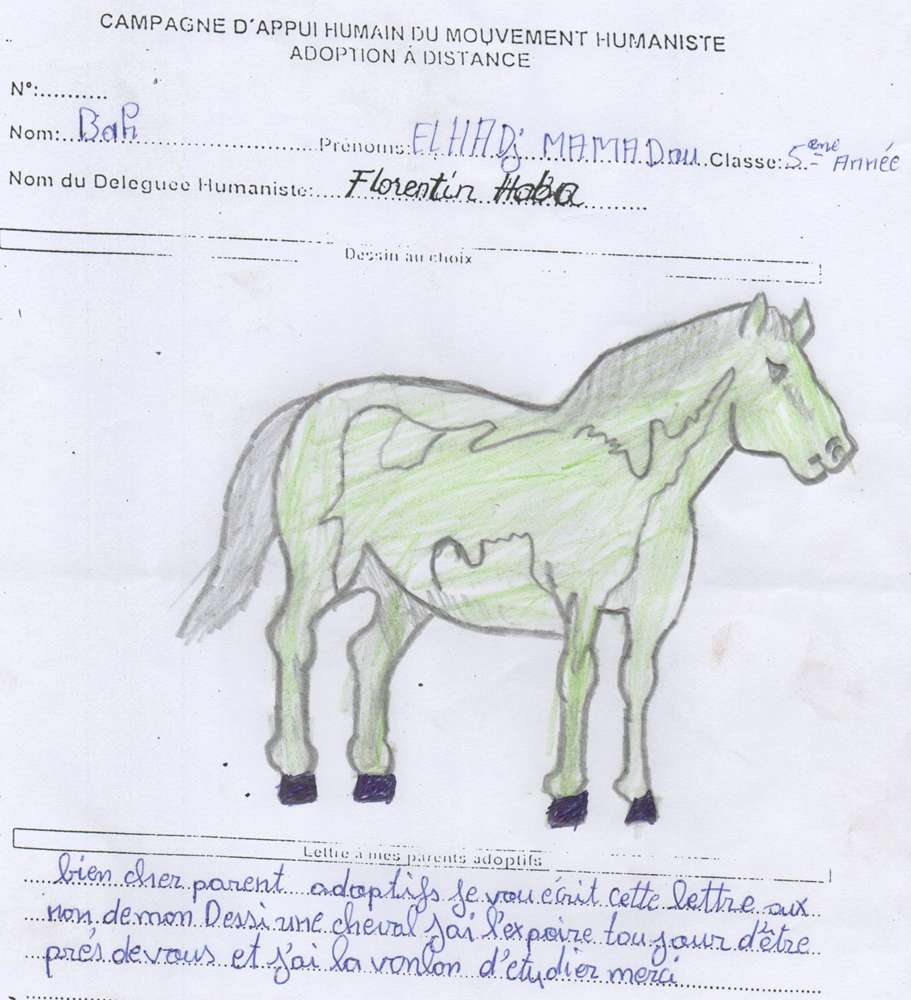 CAMPAGNE D'APPUI HUMAIN DU MOUVEMENT HUMANISTE
ADOPTION À DISTANCE
N°:..........
Nom: Bah Prénoms: ELHADj MAMADou Classe: 5ème Année
Nom du Deleguee Humaniste: Florentin Haba
Dessin au choix
Lettre à mes parents adoptifs
bien cher parent adoptifs je vou écrit cette lettre aux
non demon Dessi une cheval j'ai l'expoire toujour d'être
prés devous et j'ai la vonlon d'étudier merci